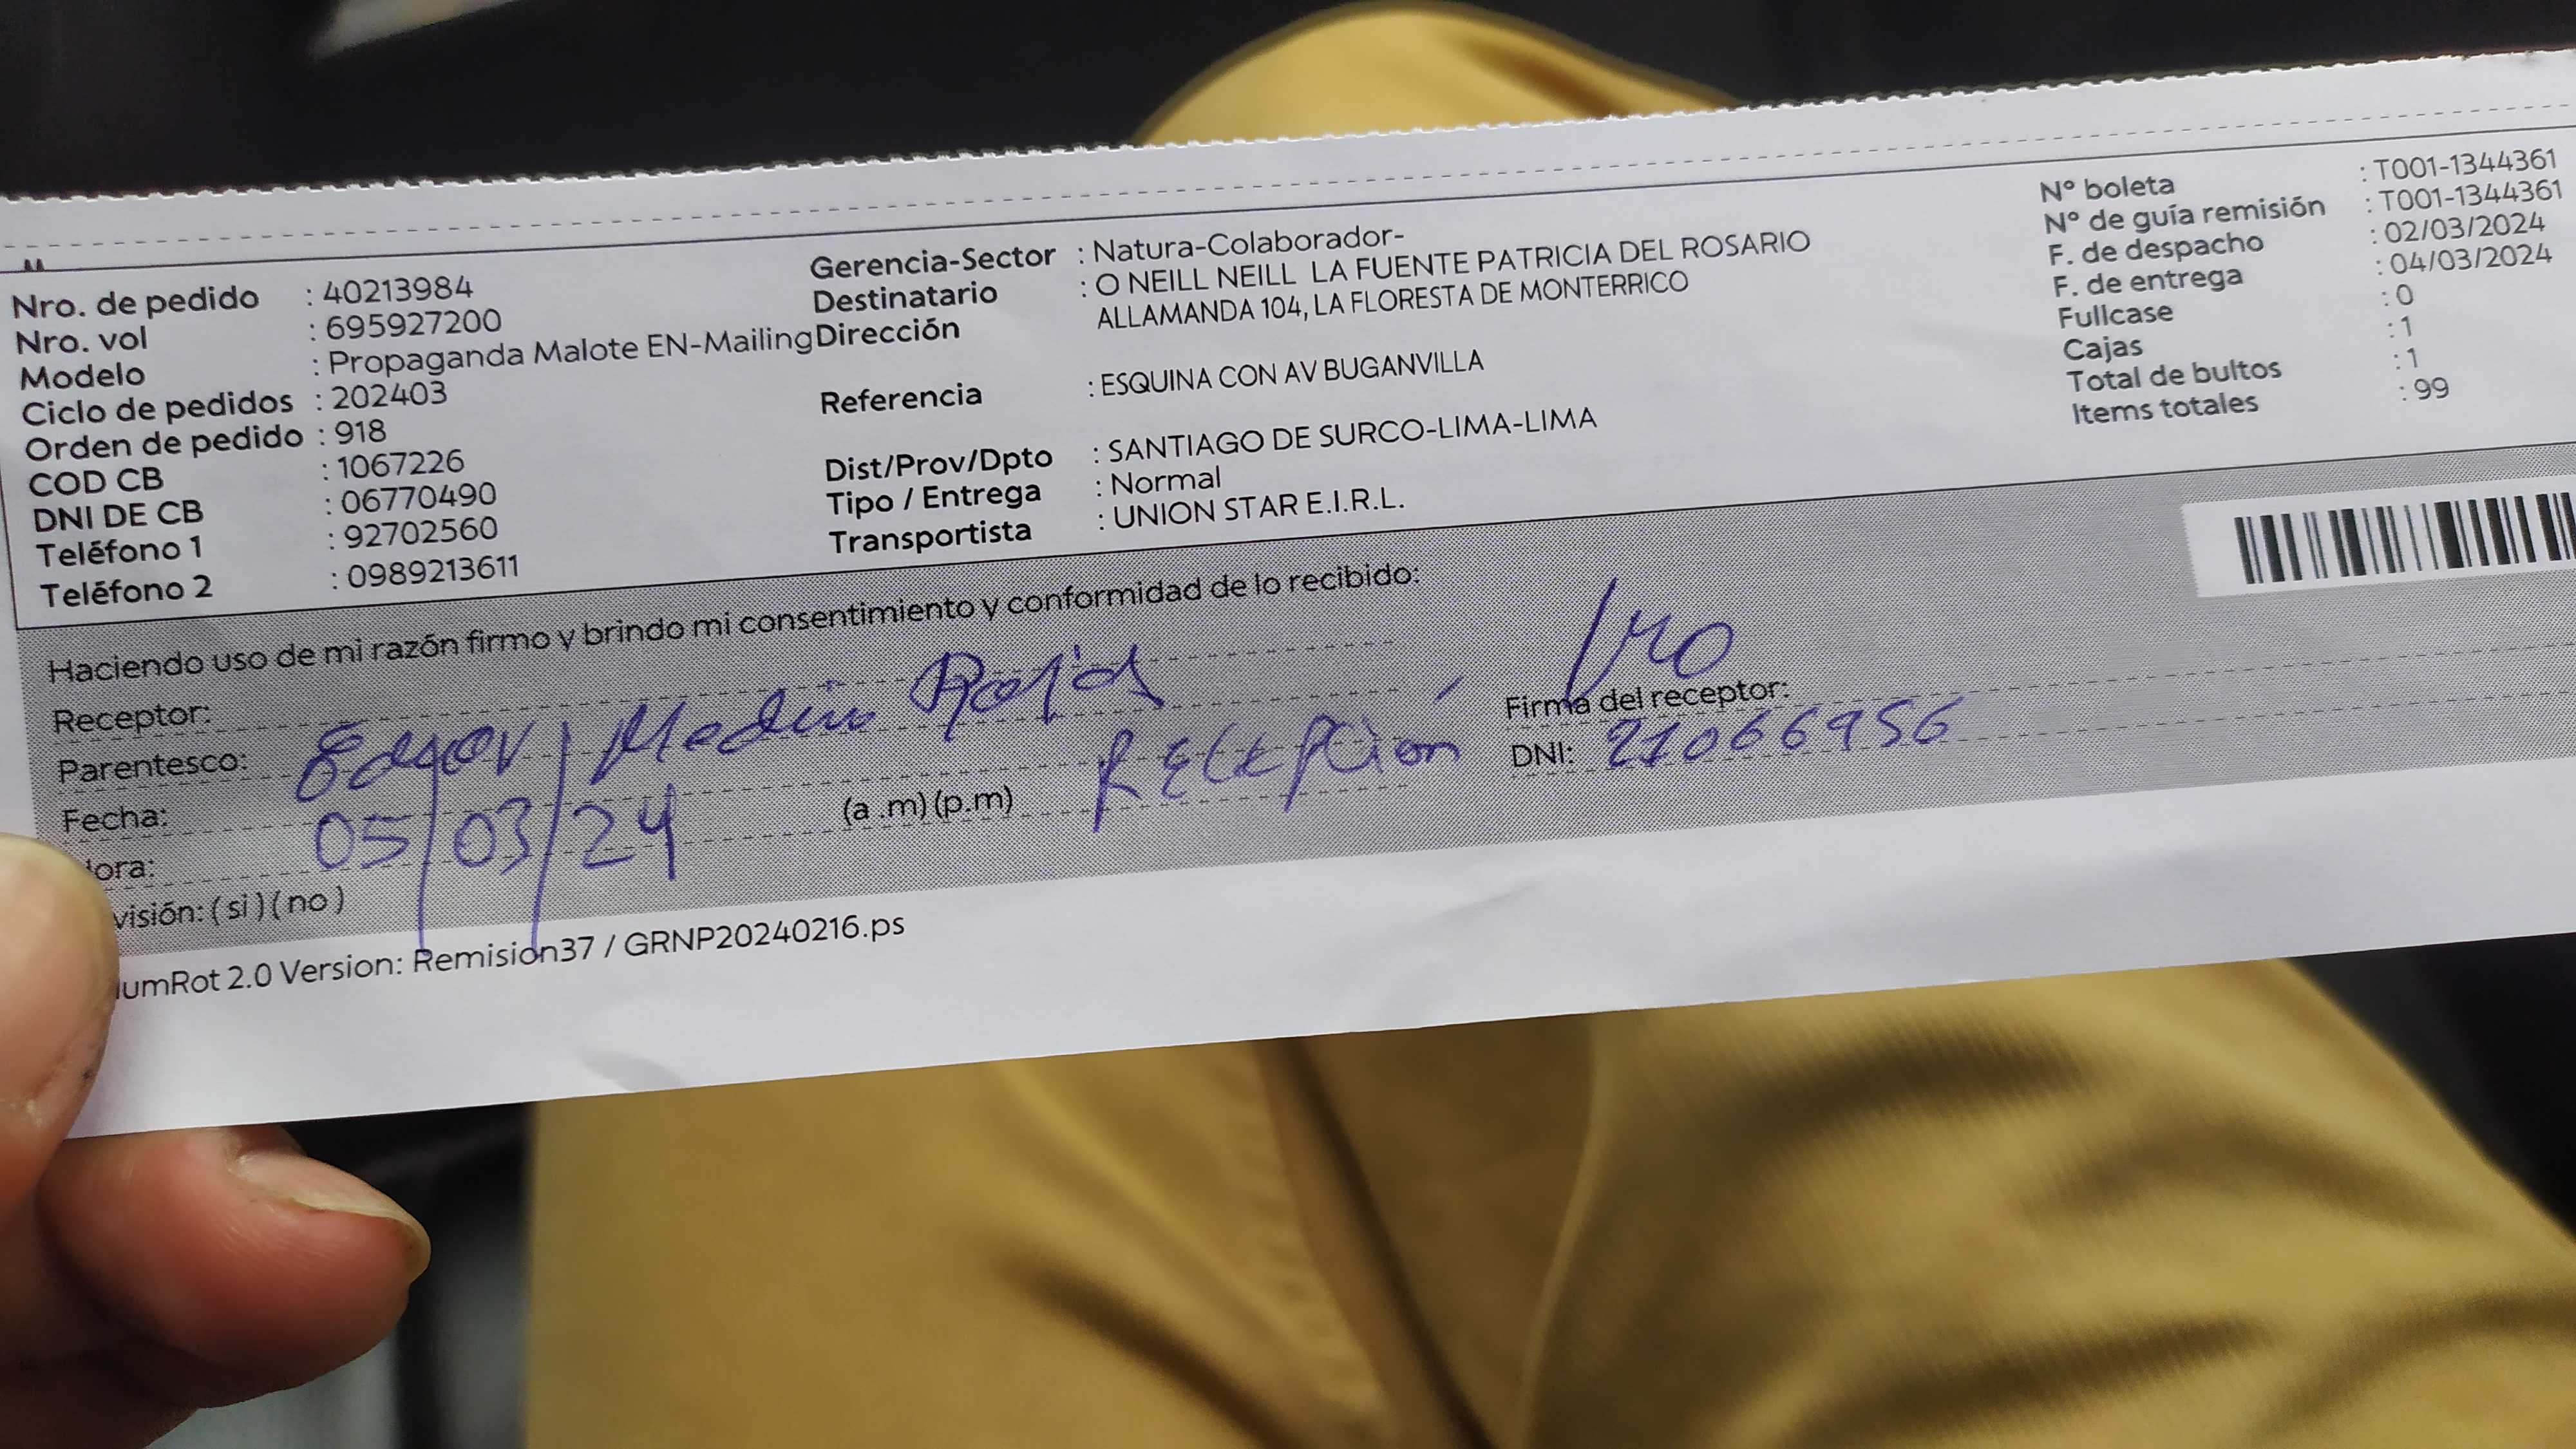 Nro. de pedido : 40213984
Nro. vol : 695927200
Modelo : Propaganda Malote EN-Mailing
Ciclo de pedidos : 202403
Orden de pedido : 918
COD CB : 1067226
DNI DE CB : 06770490
Teléfono 1 : 92702560
Teléfono 2 : 0989213611
Gerencia-Sector : Natura-Colaborador-
Destinatario : O NEILL NEILL LA FUENTE PATRICIA DEL ROSARIO
Dirección : ALLAMANDA 104, LA FLORESTA DE MONTERRICO
Referencia : ESQUINA CON AV BUGANVILLA
Dist/Prov/Dpto : SANTIAGO DE SURCO-LIMA-LIMA
Tipo / Entrega : Normal
Transportista : UNION STAR E.I.R.L.
Nº boleta : T001-1344361
Nº de guía remisión : T001-1344361
F. de despacho : 02/03/2024
F. de entrega : 04/03/2024
Fullcase : 0
Cajas : 1
Total de bultos : 1
Items totales : 99
Haciendo uso de mi razón firmo y brindo mi consentimiento y conformidad de lo recibido:
Receptor:
Parentesco: Edgar Medina Rojas
Fecha: 05/03/24
ora: (a .m) (p.m) Recepción
visión: ( si ) ( no )
Firma del receptor:
DNI: 21066956
umRot 2.0 Version: Remision37 / GRNP20240216.ps